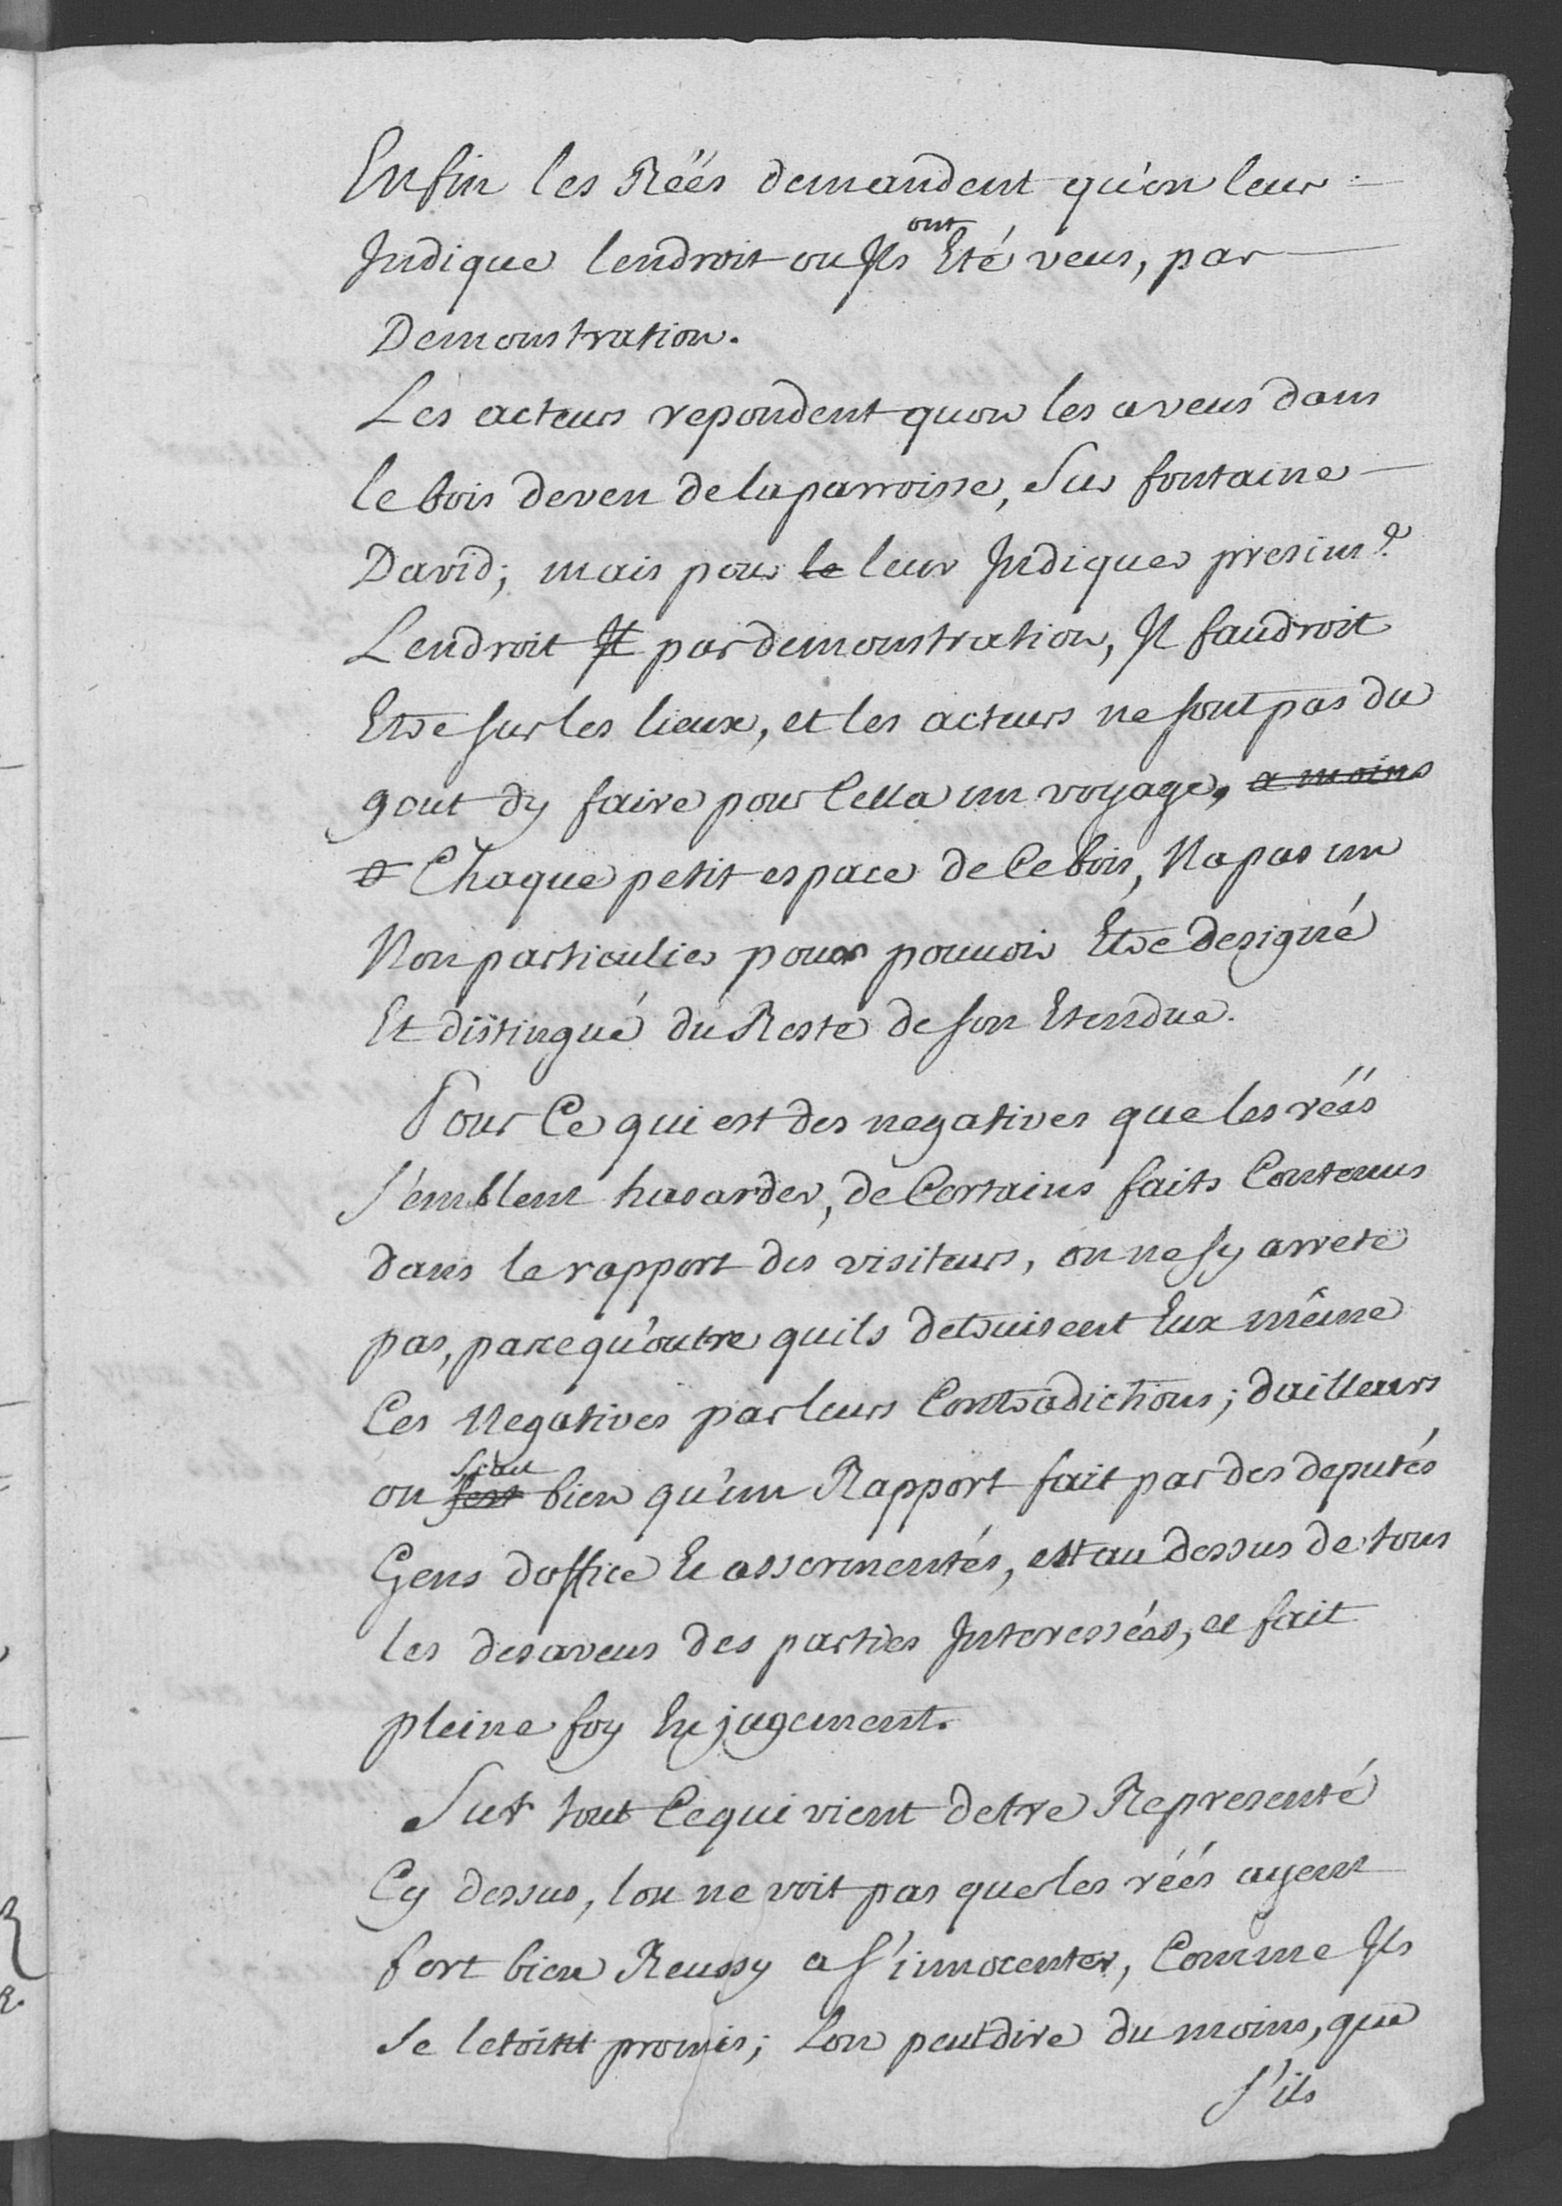 Enfin les Réés demandent qu'on leur
Indique lendroit ou Ils ont Eté veus, par
Demonstration.
Les acteurs repondent quon les a veus dans
le bois deven de la parroisse, Sur fontaine
David; mais pour le leur Indiquer
Lendroit It par demonstration, Il faudroit
Etre sur les lieux, et les acteurs ne sont pas du
gout dy faire pour Cella un voyage, a moins
Chaque petit espace de Ce bois, Na pas un
Non particulier pour pouvoir Etre designé
Et distingué du Reste de son Etendue.
Pour Ce qui est des negatives que les réés
s'emblent hasarder, de Certains faits Contenus
dans le rapport des visiteurs, on ne sy arrete
pas, parce qu'outre quils detruisent Eux même
Ces Negatives par leurs Contradictions; dailleurs
on sent scait bien qu'un Rapport fait par des deputés
Gens doffice Et assermentés, est au dessus de tous
les desaveus des parties Interessées, et fait
pleine foy En jugement.
Sur tout Ce qui vient detre Representé
Cy dessus, lon ne voit pas que les réés ayent
fort bien Reussy a s'innocenter, Comme Ils
Se letoint promis; Lon peut dire du moins, que
s'ils